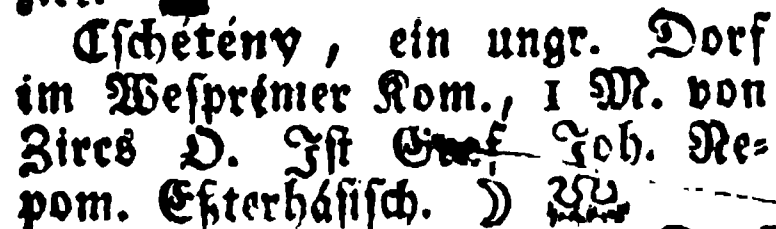 Cſchétény, ein ungr. Dorf
im Weſprémer Kom., 1 M. von
Zircs O. Iſt Graf Joh. Ne⸗
pom. Eßterháſiſch. ☽